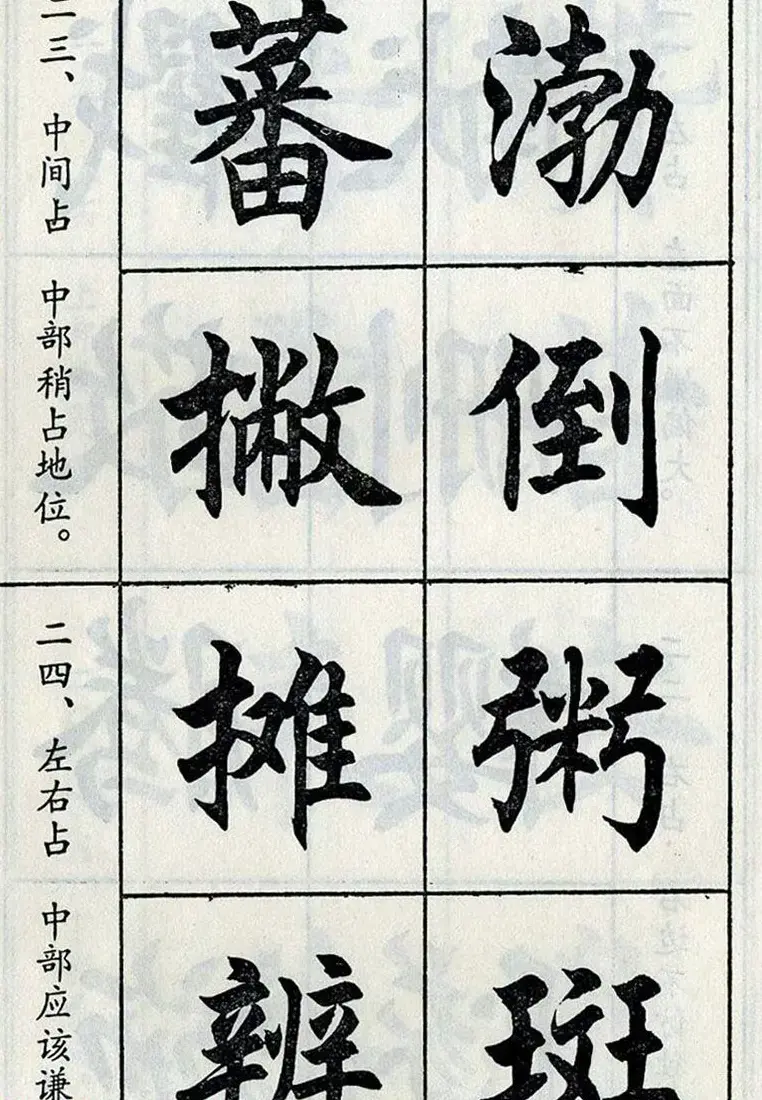 渤
倒
粥
斑
蕃
撇
摊
辨
二三、中间占
中部稍占地位。
二四、左右占
中部应该谦